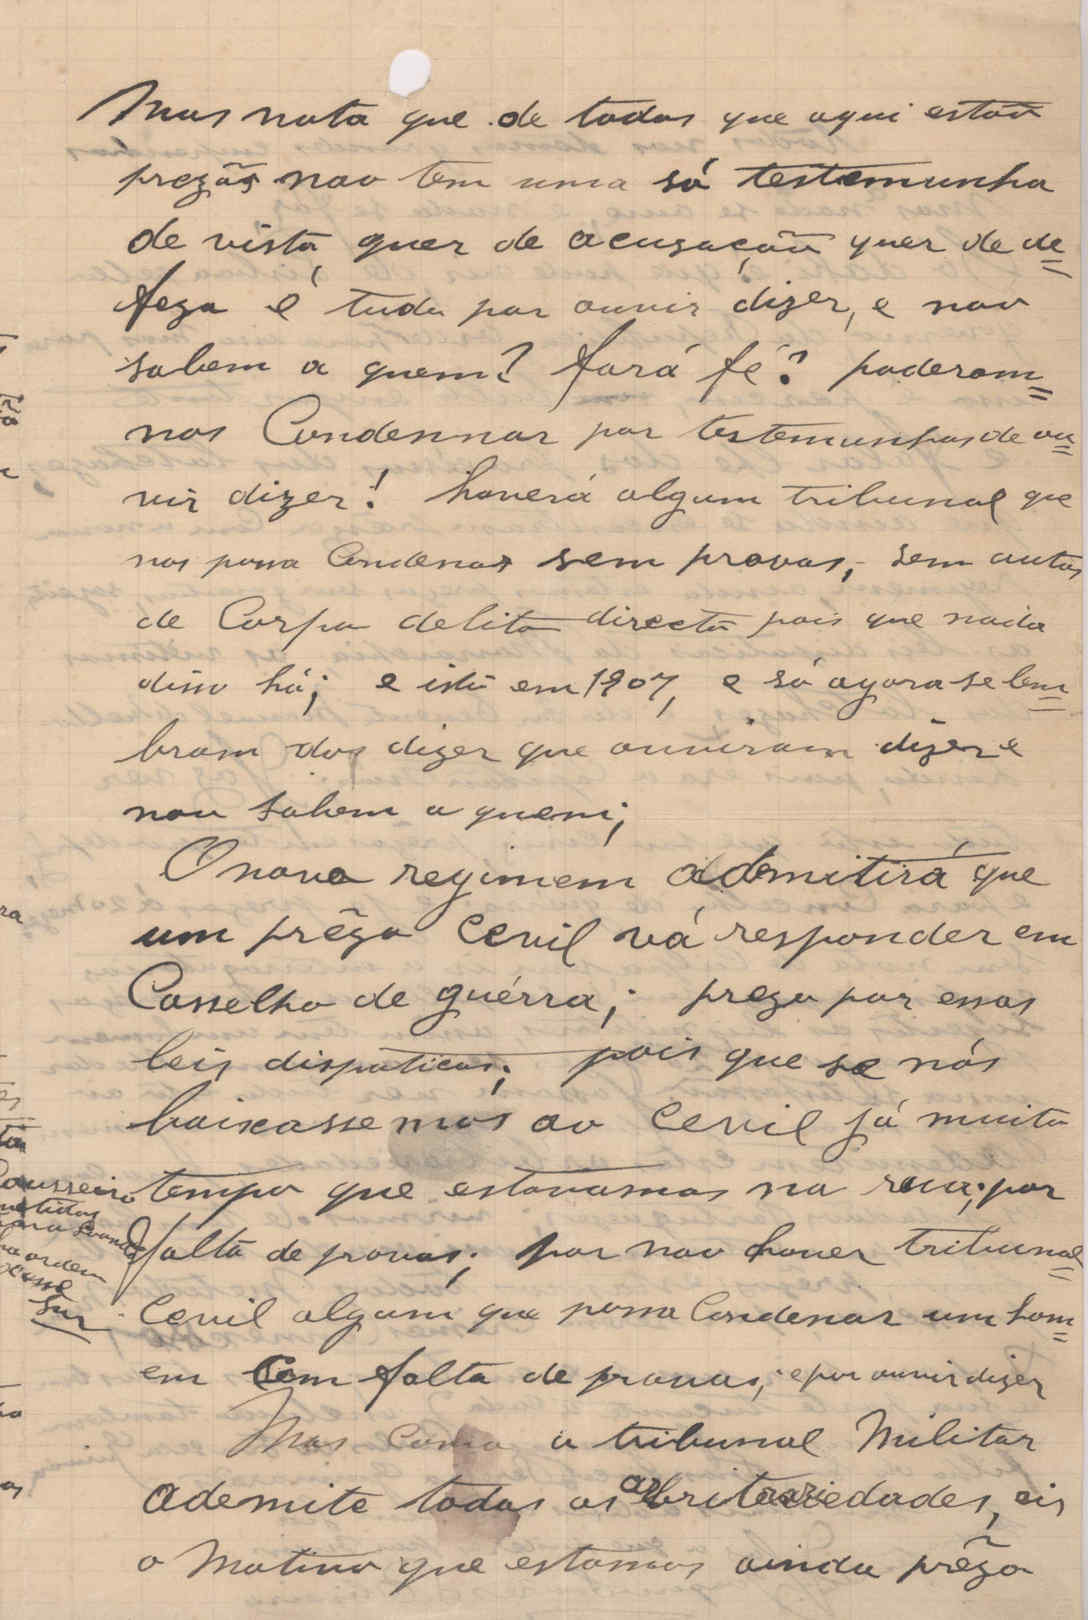 Mas nota que de todos que aqui estão
prezõs nao tem uma só testemunha
de vista quer de acusação quer de de=
feza é tudo por ouvir dizer, e nao
sabem a quem? fará fé? poderam=
nos Condennar por testemunhas de ou=
vir dizer! haverá algum tribunal que
nos possa Condenar sem provas, sem autos
de Corpo delito directo pois que nada
disso há; e isto em 1907, e só agora se lem=
bram dos dizer que ouviram dizer e
nao sabem a quem;
O novo regimem ademitirá que
um prêzo Cevil vá responder em
Conselho de guérra; prezo por essas
leis dispoticas; pois que se nós
baixassemos ao Cevil já muito
tempo que estavamos na rua; por
falta de provas; por nao haver tribunal=
Cevil algum que possa Condenar um hom=
em Com falta de provas; e por ouvir dizer
Mas Como o tribunal Militar
ademite todas as arbritrariedades, eis
o Motivo que estamos ainda prêzo